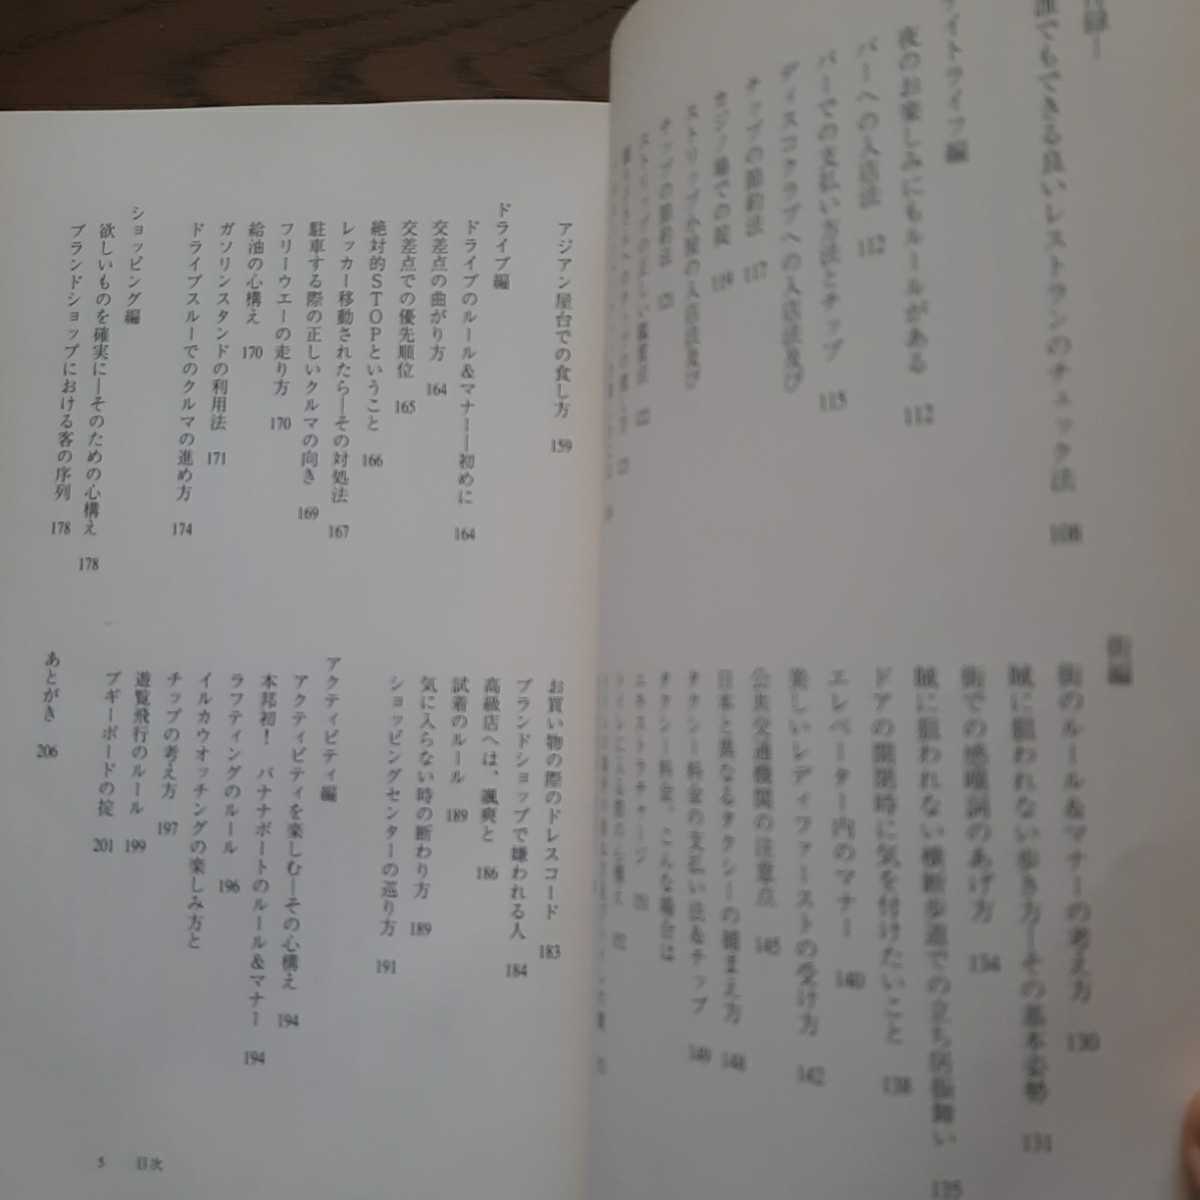 誰でもできる良いレストランのチェック法 108
ナイトライフ編
夜のお楽しみにもルールがある 112
バーへの入店法 112
バーでの支払い方法とチップ 115
ディスコクラブへの入店法及び
チップの節約法 117
カジノ場での掟 119
街編
街のルール&マナーの考え方 130
賊に狙われない歩き方―その基本姿勢 131
街での感嘆詞のあげ方 134
賊に狙われない横断歩道での立ち居振舞い 135
ドアの開閉時に気を付けたいこと 138
エレベーター内のマナー 140
楽しいレディファーストの受け方 142
公共交通機関の注意点 145
日本と異なるタクシーの捕まえ方 148
タクシー料金の支払い法&チップ 149
タクシー料金、こんな場合は
エキストラチャージ
アジアン屋台での食し方 159
ドライブ編
ドライブのルール&マナー―初めに 164
交差点の曲がり方 164
交差点での優先順位 165
絶対的STOPということ 166
レッカー移動されたら―その対処法 167
駐車する際の正しいクルマの向き 169
フリーウエーの走り方 170
給油の心構え 170
ガソリンスタンドの利用法 171
ドライブスルーでのクルマの進め方 174
ショッピング編
欲しいものを確実に―そのための心構え 178
ブランドショップにおける客の序列 178
お買い物の際のドレスコード 183
ブランドショップで嫌われる人 184
高級店へは、颯爽と 186
試着のルール 189
気に入らない時の断わり方 189
ショッピングセンターの巡り方 191
アクティビティ編
アクティビティを楽しむ―その心構え 194
本邦初! バナナボートのルール&マナー 194
ラフティングのルール 196
イルカウオッチングの楽しみ方と
チップの考え方 197
遊覧飛行のルール 199
ブギーボードの掟 201
あとがき 206
5 目次